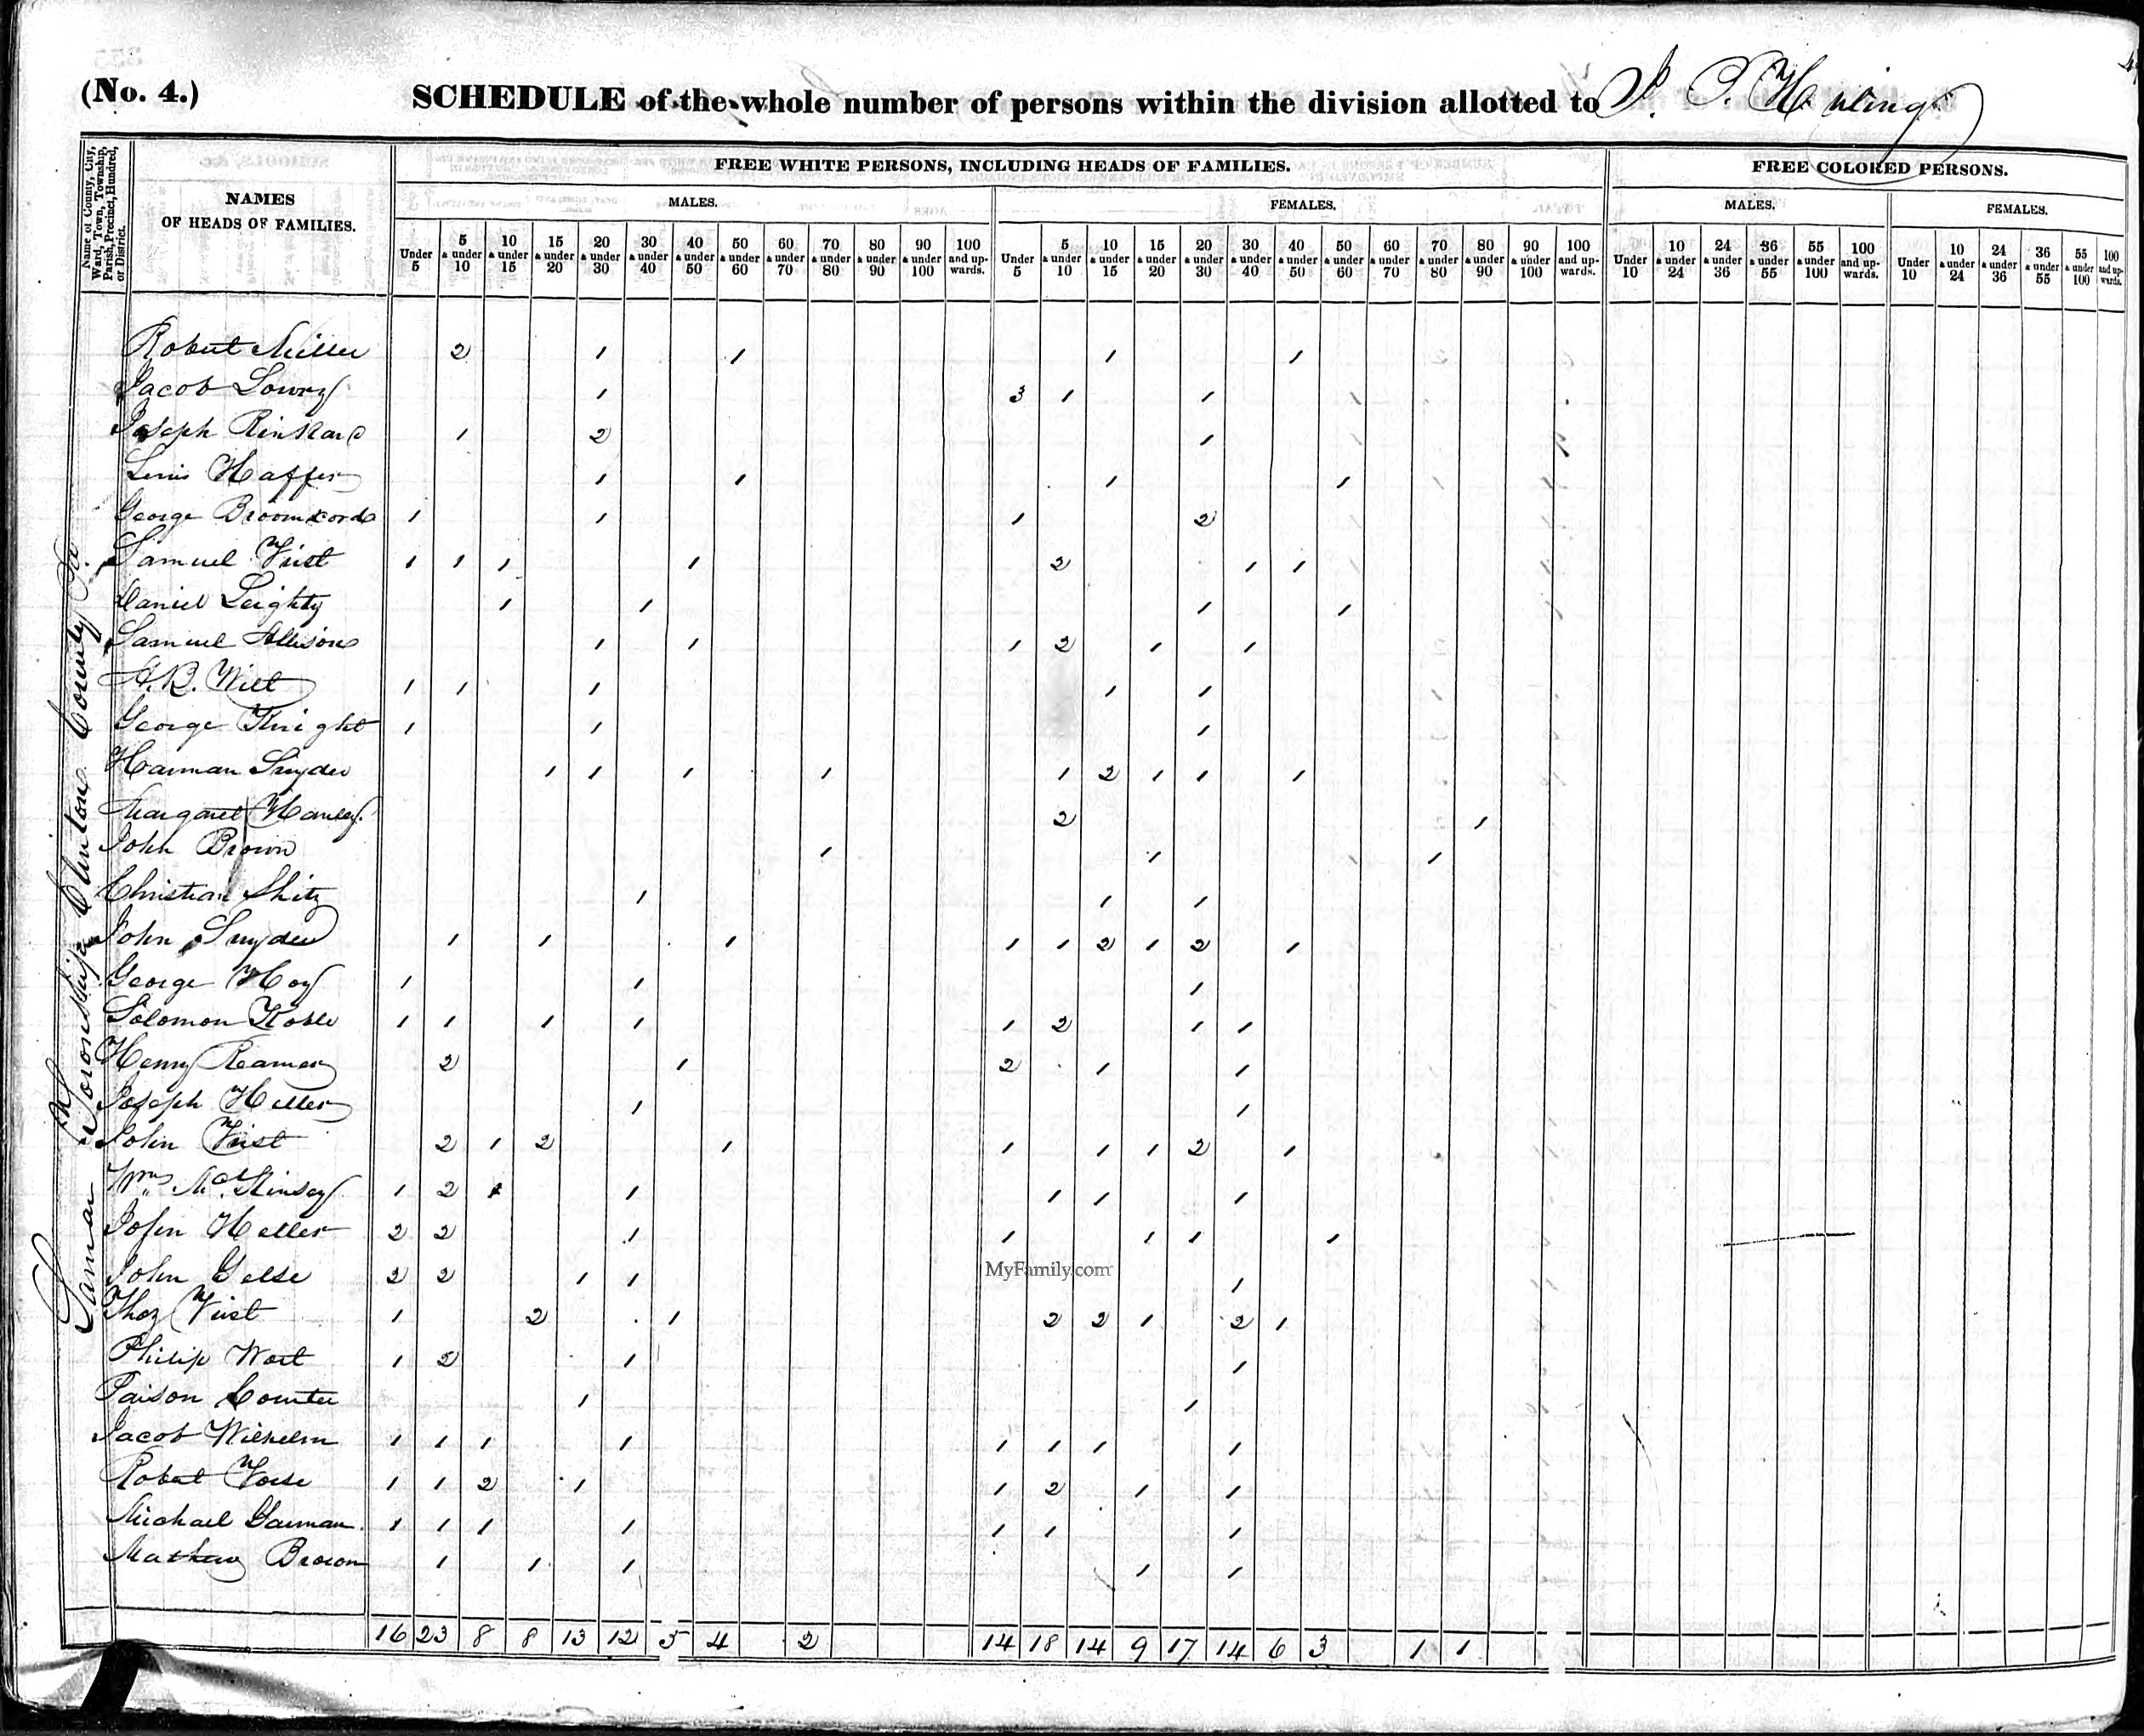 (No. 4.) SCHEDULE of the whole number of persons within the division allotted to
Name of County, City, Ward, Town, Township, Parish, Precinct, Hundred, or District.
NAMES OF HEADS OF FAMILIES.
FREE WHITE PERSONS, INCLUDING HEADS OF FAMILIES.
FREE COLORED PERSONS.
MALES. FEMALES. MALES. FEMALES.
Under 5 | 5 & under 10 | 10 & under 15 | 15 & under 20 | 20 & under 30 | 30 & under 40 | 40 & under 50 | 50 & under 60 | 60 & under 70 | 70 & under 80 | 80 & under 90 | 90 & under 100 | 100 and upwards. | Under 5 | 5 & under 10 | 10 & under 15 | 15 & under 20 | 20 & under 30 | 30 & under 40 | 40 & under 50 | 50 & under 60 | 60 & under 70 | 70 & under 80 | 80 & under 90 | 90 & under 100 | 100 and upwards. | Under 10 | 10 & under 24 | 24 & under 36 | 36 & under 55 | 55 & under 100 | 100 and upwards. | Under 10 | 10 & under 24 | 24 & under 36 | 36 & under 55 | 55 & under 100 | 100 and upwards.
Lamar Township Clinton County
Robert Miller 2 1 1 1 1
Jacob Lowry 1 3 1 1
Joseph 1 2 1
Haffer 1 1 1 1
George 1 1 1 2
Samuel 1 1 1 1 2 1 1
Daniel Leighty 1 1 1 1
Samuel Allison 1 1 1 2 1 1
Wilt 1 1 1 1 1
George Knight 1 1 1
Harman Snyder 1 1 1 1 1 2 1 1 1
Margaret 2 1
John Brown 1 1 1
Christian 1 1 1
John Snyder 1 1 1 1 1 2 1 2 1
George Hoy 1 1 1
Solomon 1 1 1 1 1 2 1 1
Henry Reamer 2 1 2 1 1
Joseph Heller 1 1
John 2 1 2 1 1 1 1 2 1
Wm Mc Kinsey 1 2 1 1 1 1
John Heller 2 2 1 1 1 1 1
John 2 2 1 1 1
1 2 1 2 2 1 2 1
Philip 1 2 1 1
1 1
Jacob Wilhelm 1 1 1 1 1 1 1 1
Robert 1 1 2 1 1 2 1 1
Michael 1 1 1 1 1 1 1
Mathew Brown 1 1 1 1 1
16 23 8 8 13 12 5 4 2 14 18 14 9 17 14 6 3 1 1
MyFamily.com